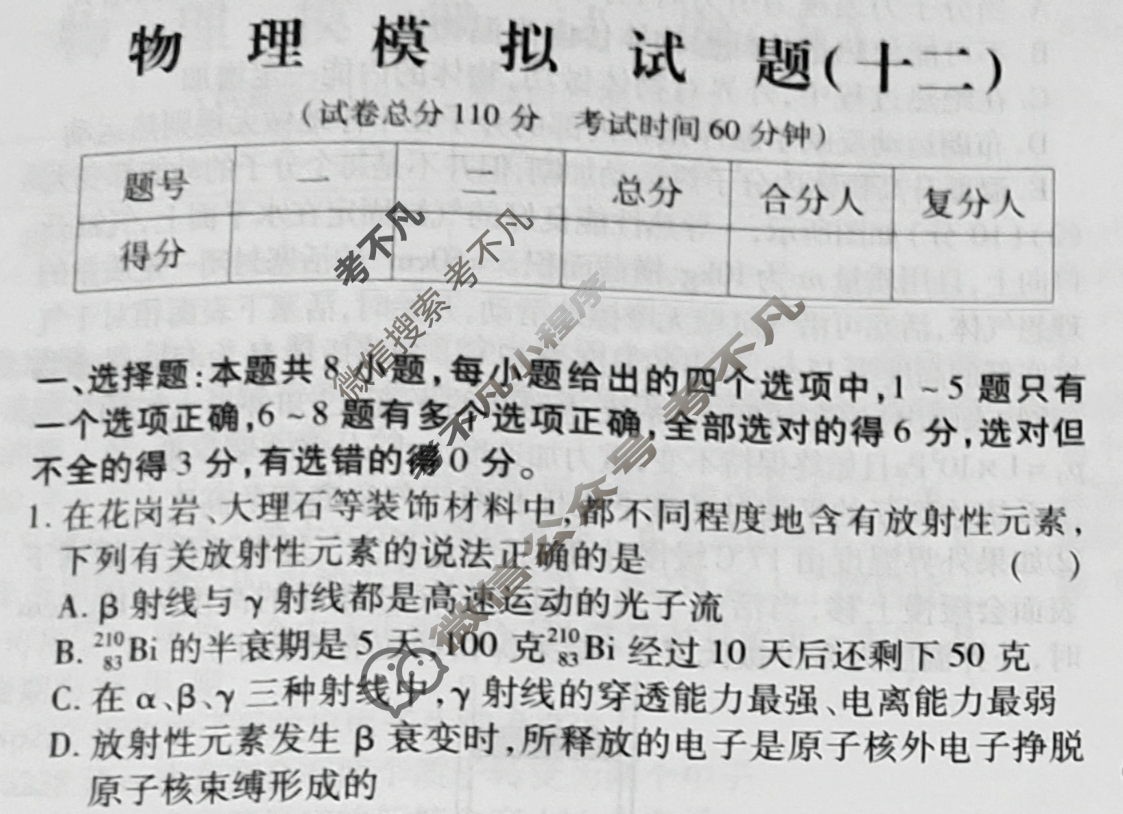 物理模拟试题(十二)
(试卷总分110分 考试时间60分钟)
题号 一 二 总分 合分人 复分人
得分
考不凡
微信搜索 考不凡
考不凡小程序
微信公众号 考不凡
一、选择题:本题共8小题,每小题给出的四个选项中,1~5题只有
一个选项正确,6~8题有多个选项正确,全部选对的得6分,选对但
不全的得3分,有选错的得0分。
1. 在花岗岩、大理石等装饰材料中,都不同程度地含有放射性元素,
下列有关放射性元素的说法正确的是 ( )
A. β射线与γ射线都是高速运动的光子流
B. ²¹⁰₈₃Bi的半衰期是5天,100克²¹⁰₈₃Bi经过10天后还剩下50克
C. 在α、β、γ三种射线中,γ射线的穿透能力最强、电离能力最弱
D. 放射性元素发生β衰变时,所释放的电子是原子核外电子挣脱
原子核束缚形成的